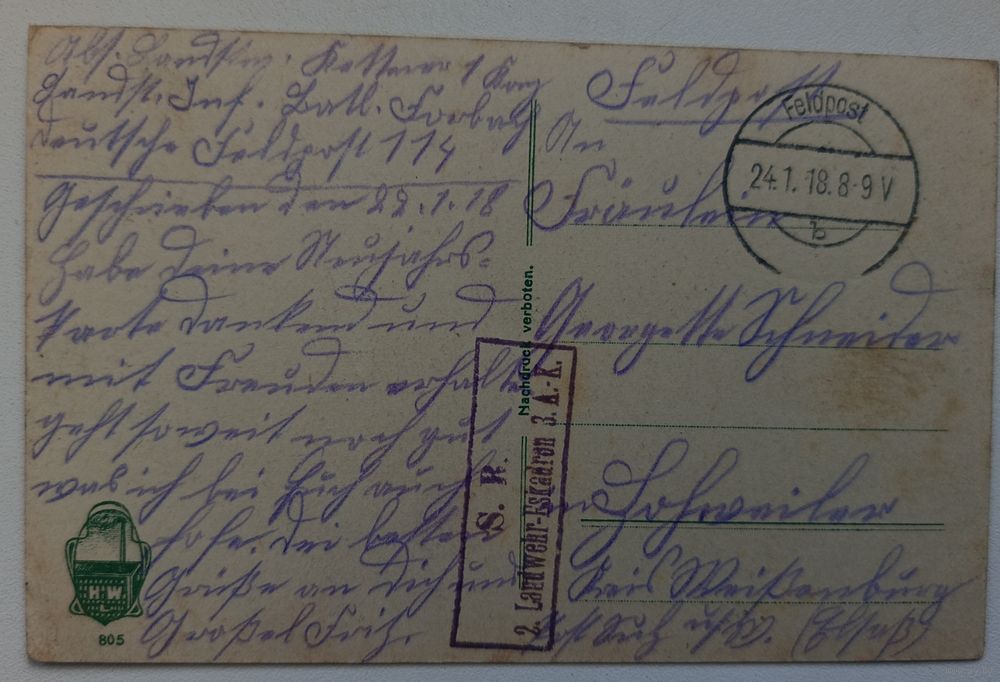 Abs. Landstm. Kettener 1 Komp
Landst. Inf. Batl. Forbach
Deutsche Feldpost 114
Geschrieben den 22.1.18
Habe Deine Neujahrs-
karte dankend und
mit Freuden erhalten
geht soweit noch gut
was ich bei Euch auch
hofe. Die besten
Grüße an Dich und
Feldpost
An
Fräulein
Georgette Schneider
in Hohweiler
Kreis Weißenburg
(Elsaß)
Feldpost
24.1.18.8-9 V
b
Nachdruck verboten.
S. B.
2. Landwehr-Eskadron 3. A.-K.
HWL
805